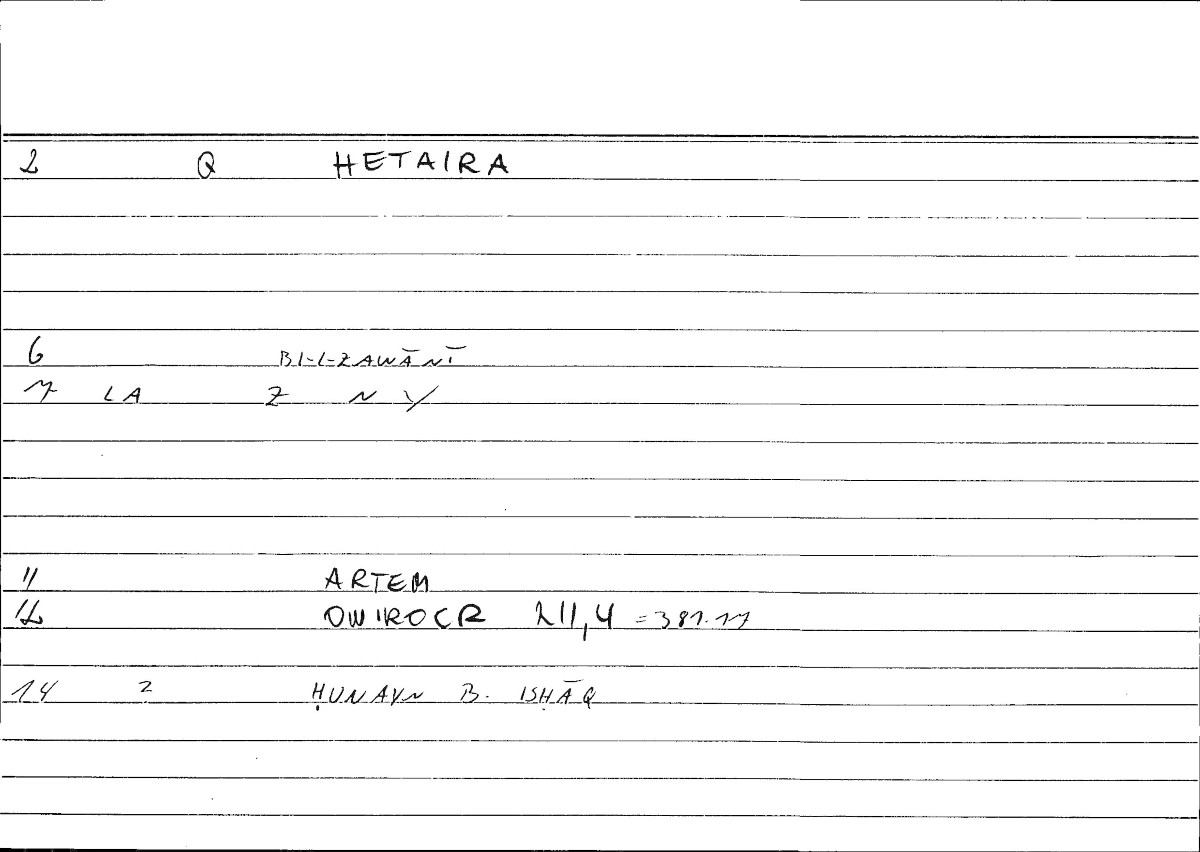 2 Q HETAIRA
6 BI-L-ZAWĀNĪ
7 LA Z N Y
11 ARTEM
12 OWIROCR 211,4 = 381.17
14 2 ḤUNAYN B. ISḤĀQ